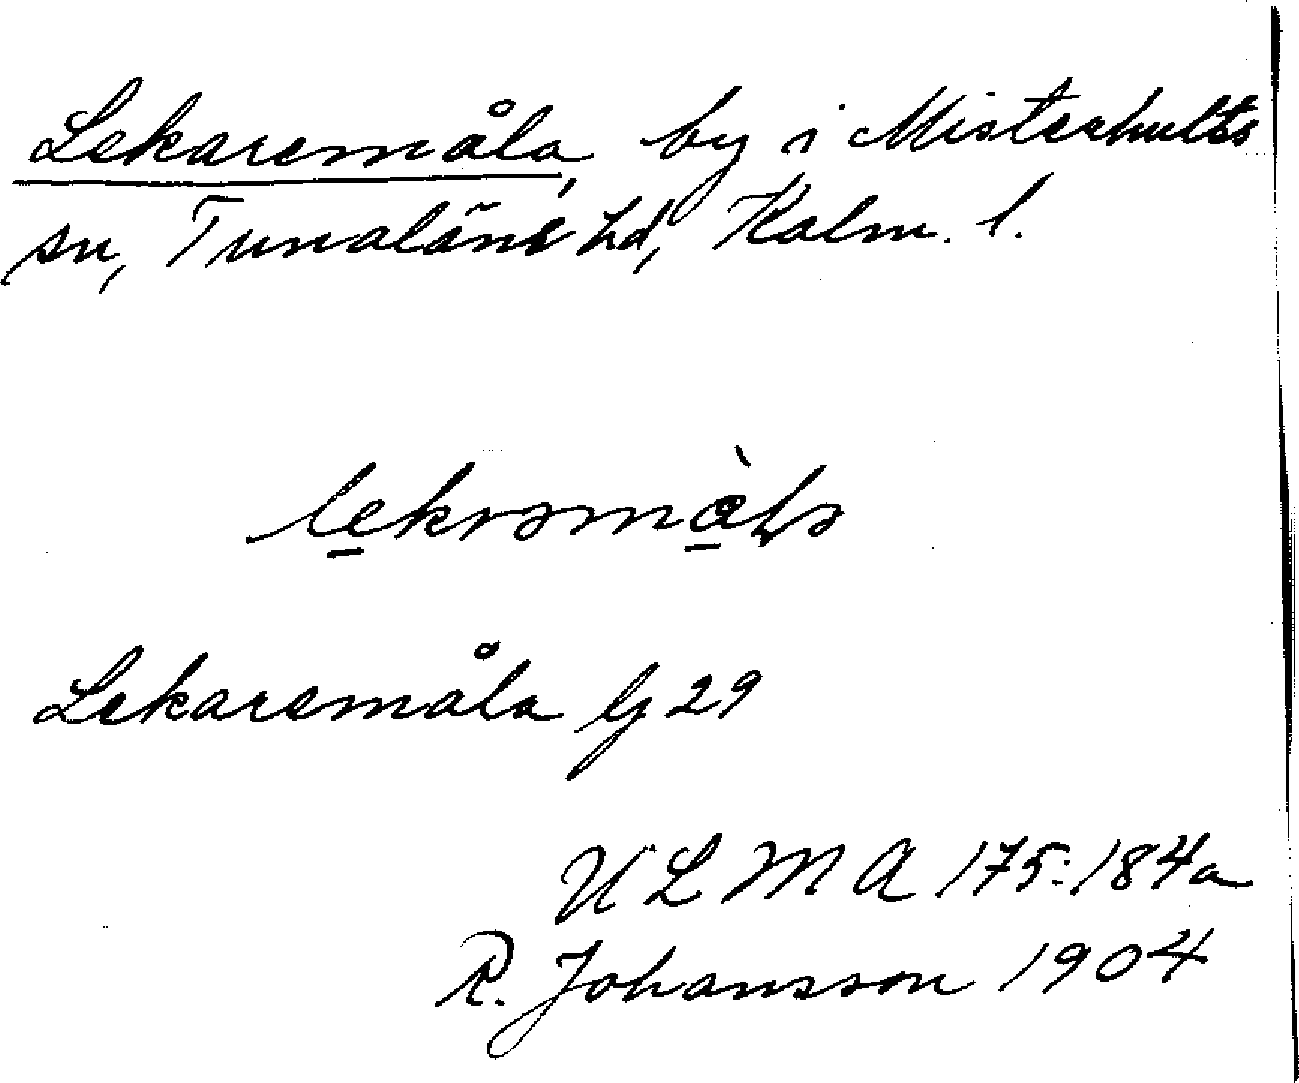 Lekaremåla, by i Misterhults
sn, Tunaläns hd, Kalm. l.
lekrəmàlə
Lekaremåla Gj 29
ULMA 175:184a
R. Johansson 1904